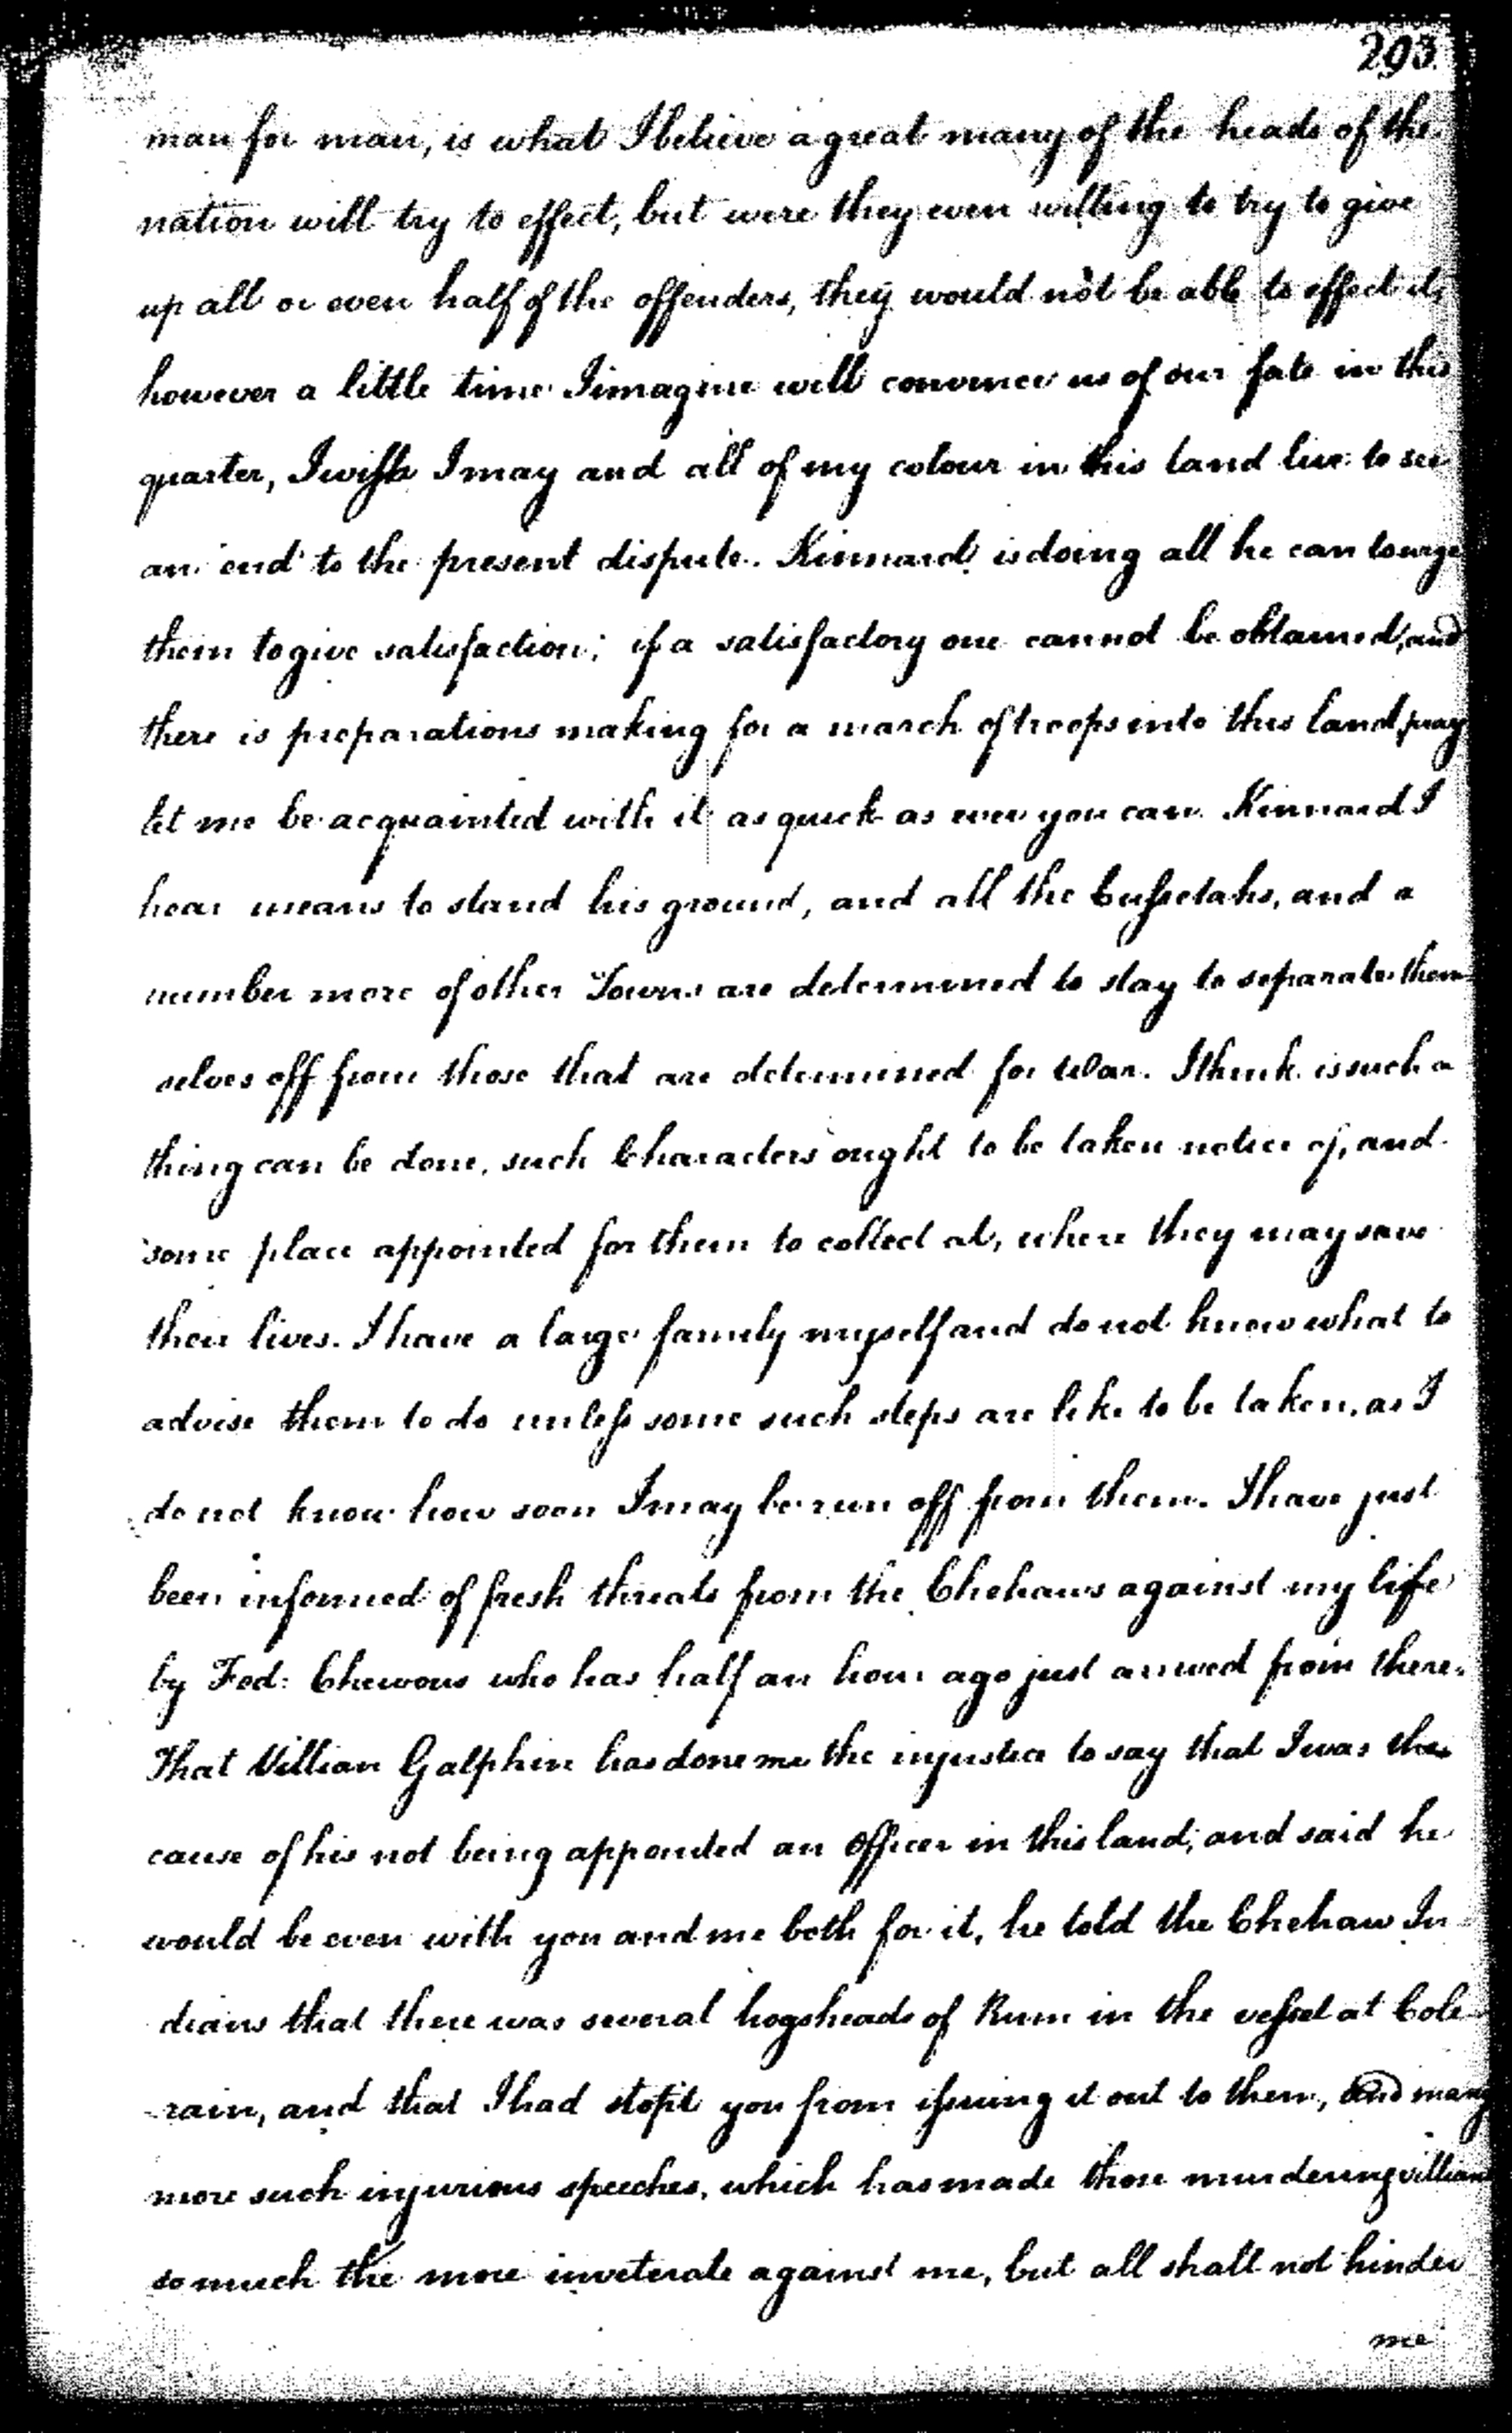 293.
man for man, is what I believe a great many of the heads of the
nation will try to effect, but were they even willing to try to give
up all or even half of the offenders, they would not be able to effect it,
however a little time I imagine will convince us of our fate in this
quarter, I wish I may and all of my colour in this land live to see
an end to the present dispute. Kinnard is doing all he can to urge
them to give satisfaction; if a satisfactory one cannot be obtained, and
there is preparations making for a march of troops into this land, pray
let me be acquainted with it as quick as ever you can. Kinnard I
hear means to stand his ground, and all the Cussetahs, and a
number more of other Towns are determined to stay to separate them
selves off from those that are determined for War. I think is such a
thing can be done, such Characters ought to be taken notice of, and
some place appointed for them to collect at, where they may save
their lives. I have a large family myself and do not know what to
advise them to do unless some such steps are like to be taken, as I
do not know how soon I may be run off from them. I have just
been informed of fresh threats from the Chehaws against my life
by Fed: Chewous who has half an hour ago just arrived from there.
That Villian Galphin has done me the injustice to say that I was the
cause of his not being appointed an Officer in this land; and said he
would be even with you and me both for it, he told the Chehaw In-
dians that there was several hogsheads of Rum in the vessel at Cole-
-rain, and that I had stopt you from issuing it out to them, and many
more such injurious speeches, which has made those murdering villians
so much the more inveterate against me, but all shall not hinder
me